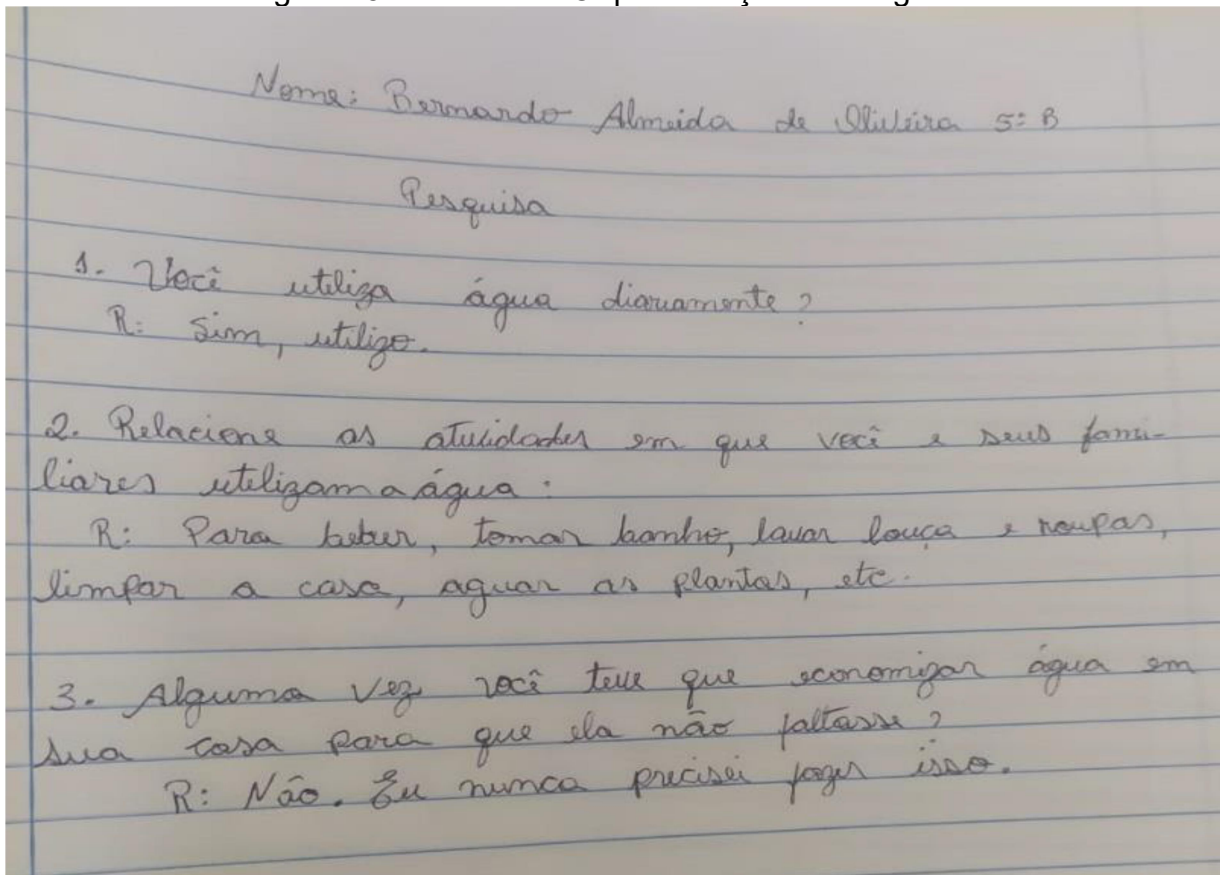 Nome: Bernardo Almeida de Oliveira 5º B
Pesquisa
1. Você utiliza água diariamente?
R: Sim, utilizo.
2. Relacione as atividades em que você e seus fami-
liares utilizam a água:
R: Para beber, tomar banho, lavar louça e roupas,
limpar a casa, aguar as plantas, etc.
3. Alguma vez você teve que economizar água em
sua casa para que ela não faltasse?
R: Não. Eu nunca precisei fazer isso.